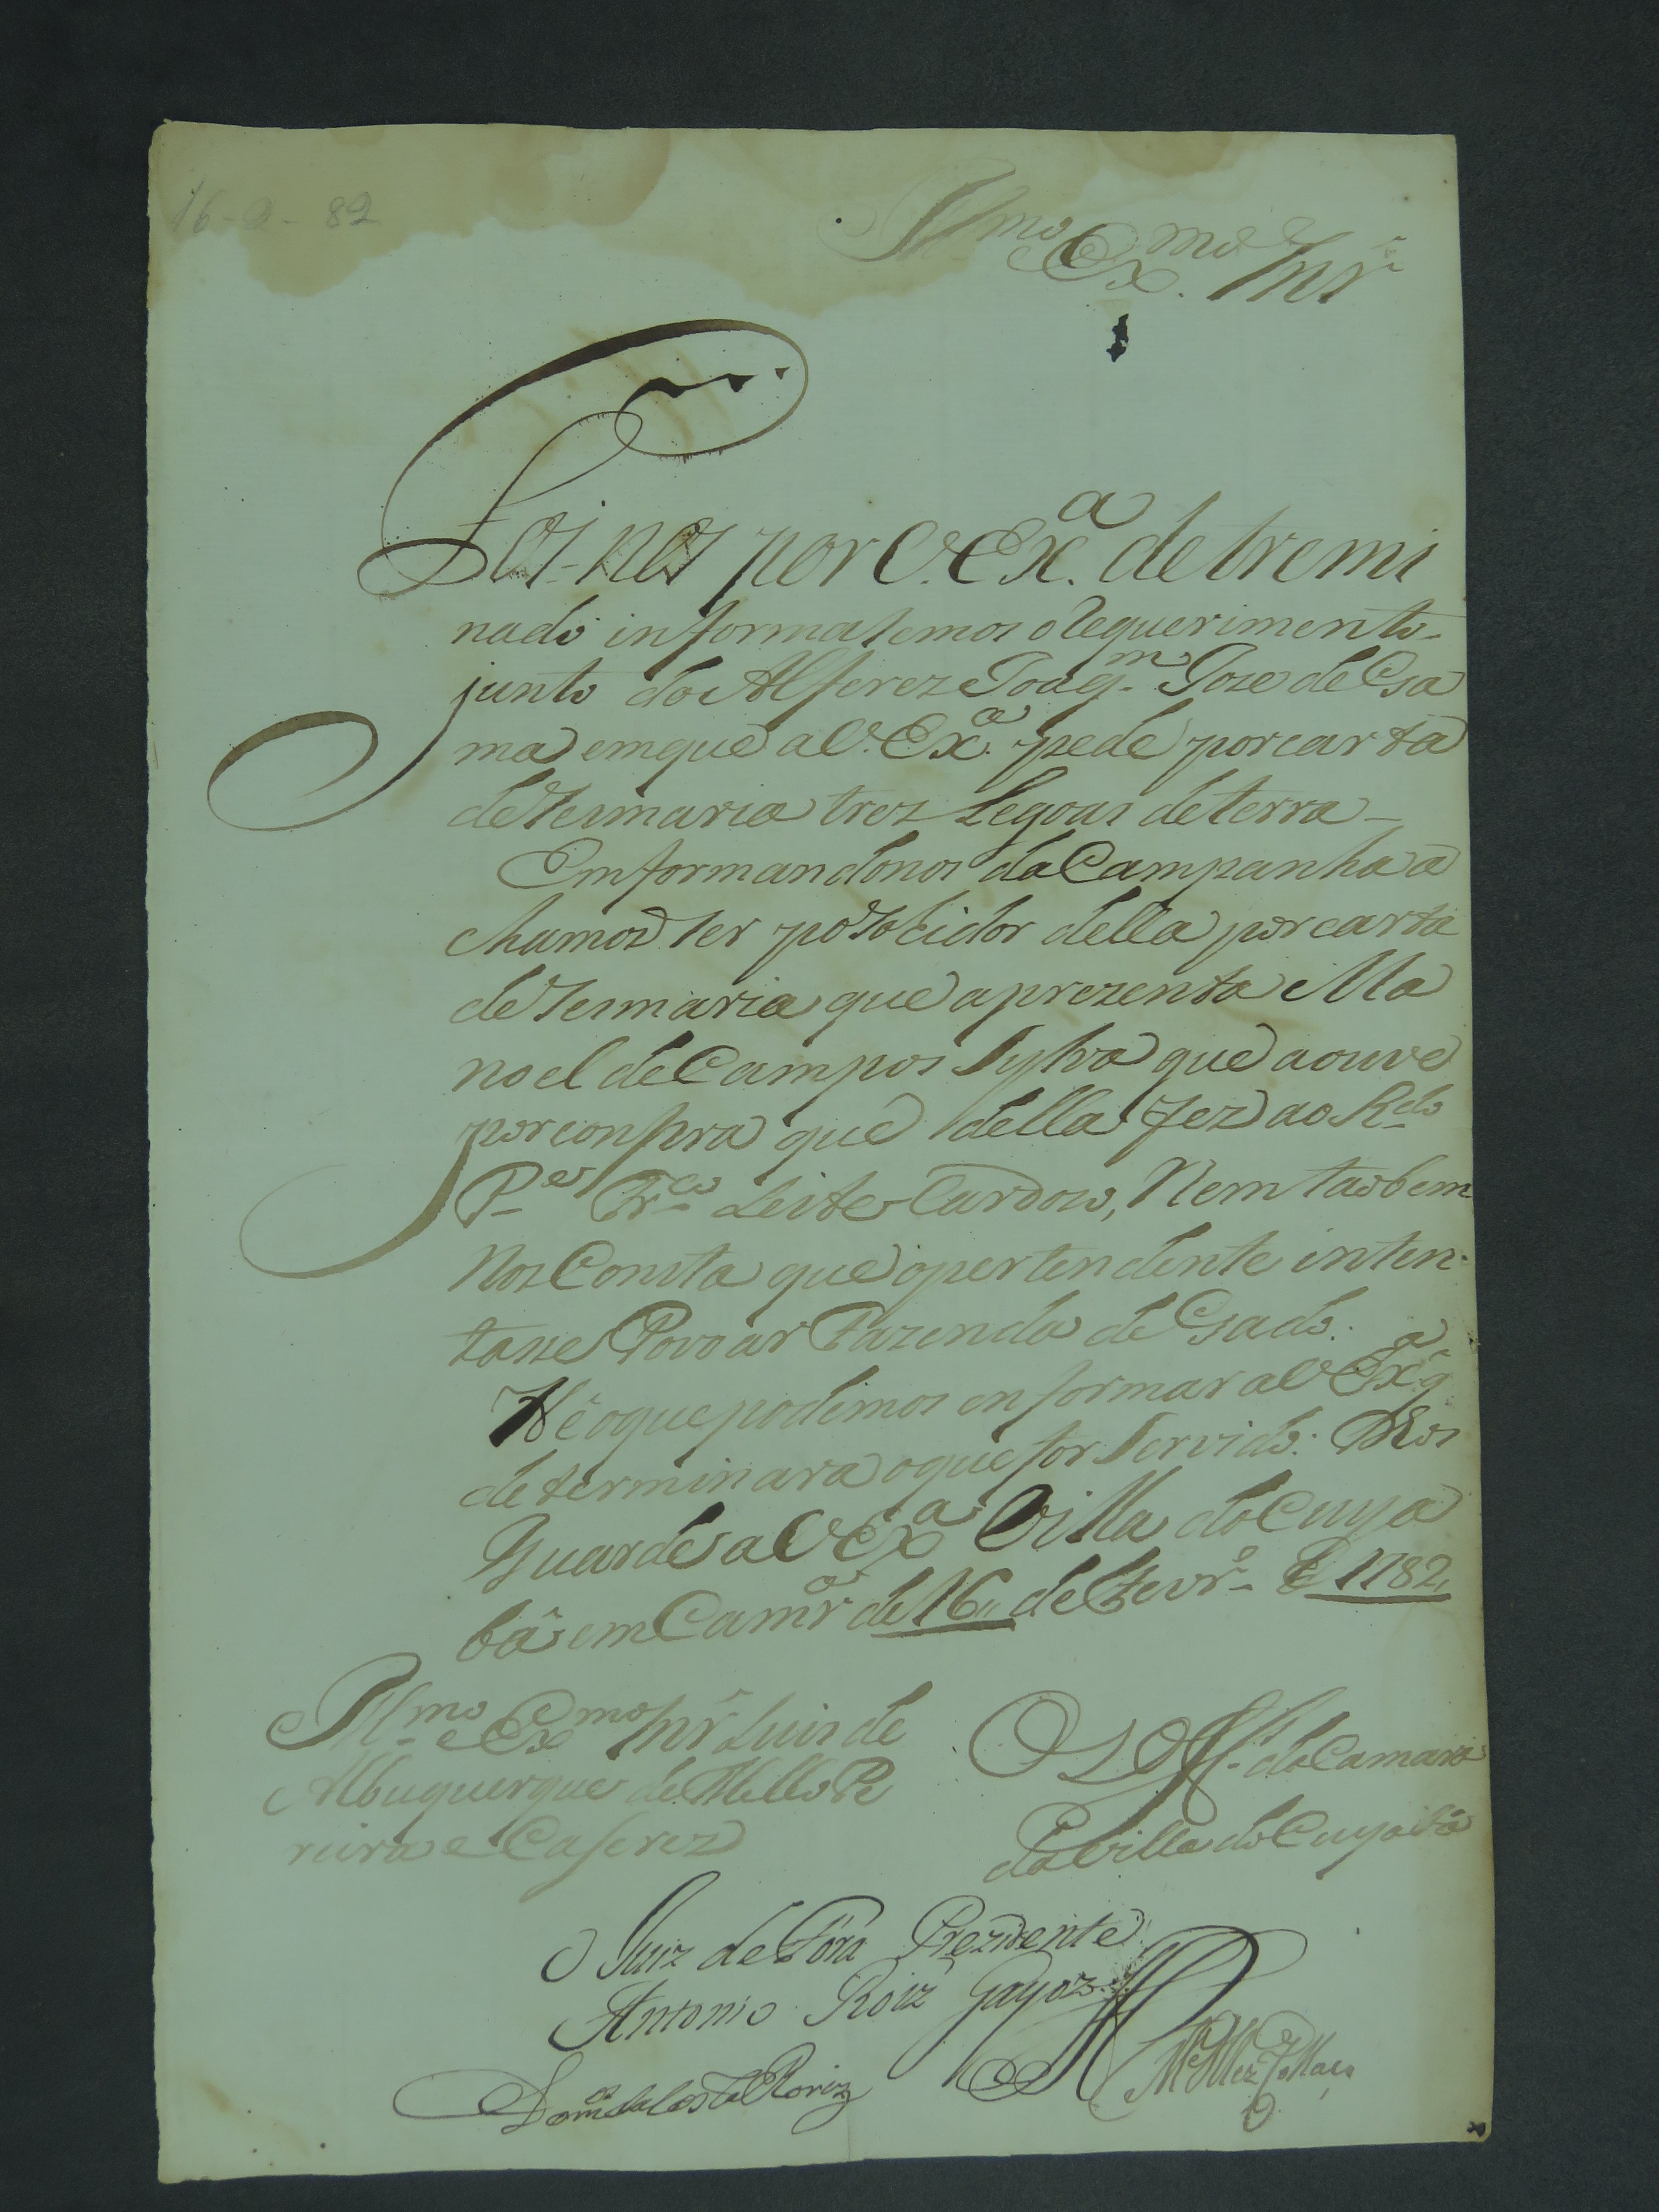 16-2-82
Ill.mo Ex.mo Snr̃
Foi-nos por V. Ex.a detremi
nado informasemos o Requerimento
junto do Alferez Joaq.m Joze de Ga
ma em que a V. Ex.a pede por carta
de Sesmaria trez Legoas de terra
Emformandonos da Campanha a
chamos ser posohidor della por carta
de Sesmaria que aprezenta Ma
noel de Campos Sylva que a ouve
por conpra que della fez ao R.do
P.e Fr.co Leite Cardozo, Nem taobem
Nos Consta que o pertendente inten-
tasse Povoar Fazenda de Gado.
Hé o que podemos enformar a V Ex.a q̃
determinara o que for Servido. D.s
Guarde a V Ex.a Villa do Cuya
bá em Camr.a de 16 de Fevr.o de 1782
Ill.mo e Ex.mo Snr̃ Luis de
Albuquerque de Mello Pe
reira e Caserez
da Camara
da Villa do Cuyabá
O Juiz de Fóra Prezidente
Antonio Roiz Gayozo
Dom.os da Costa Roriz